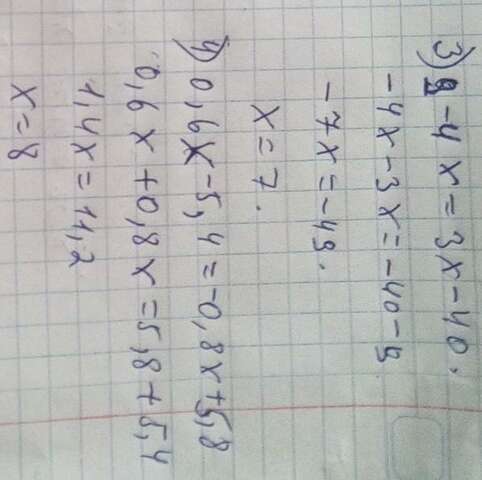 3) 9-4x=3x-40.
-4x-3x=-40-9
-7x=-49.
x=7.
4) 0,6x-5,4=-0,8x+5,8
0,6x+0,8x=5,8+5,4
1,4x=11,2
x=8